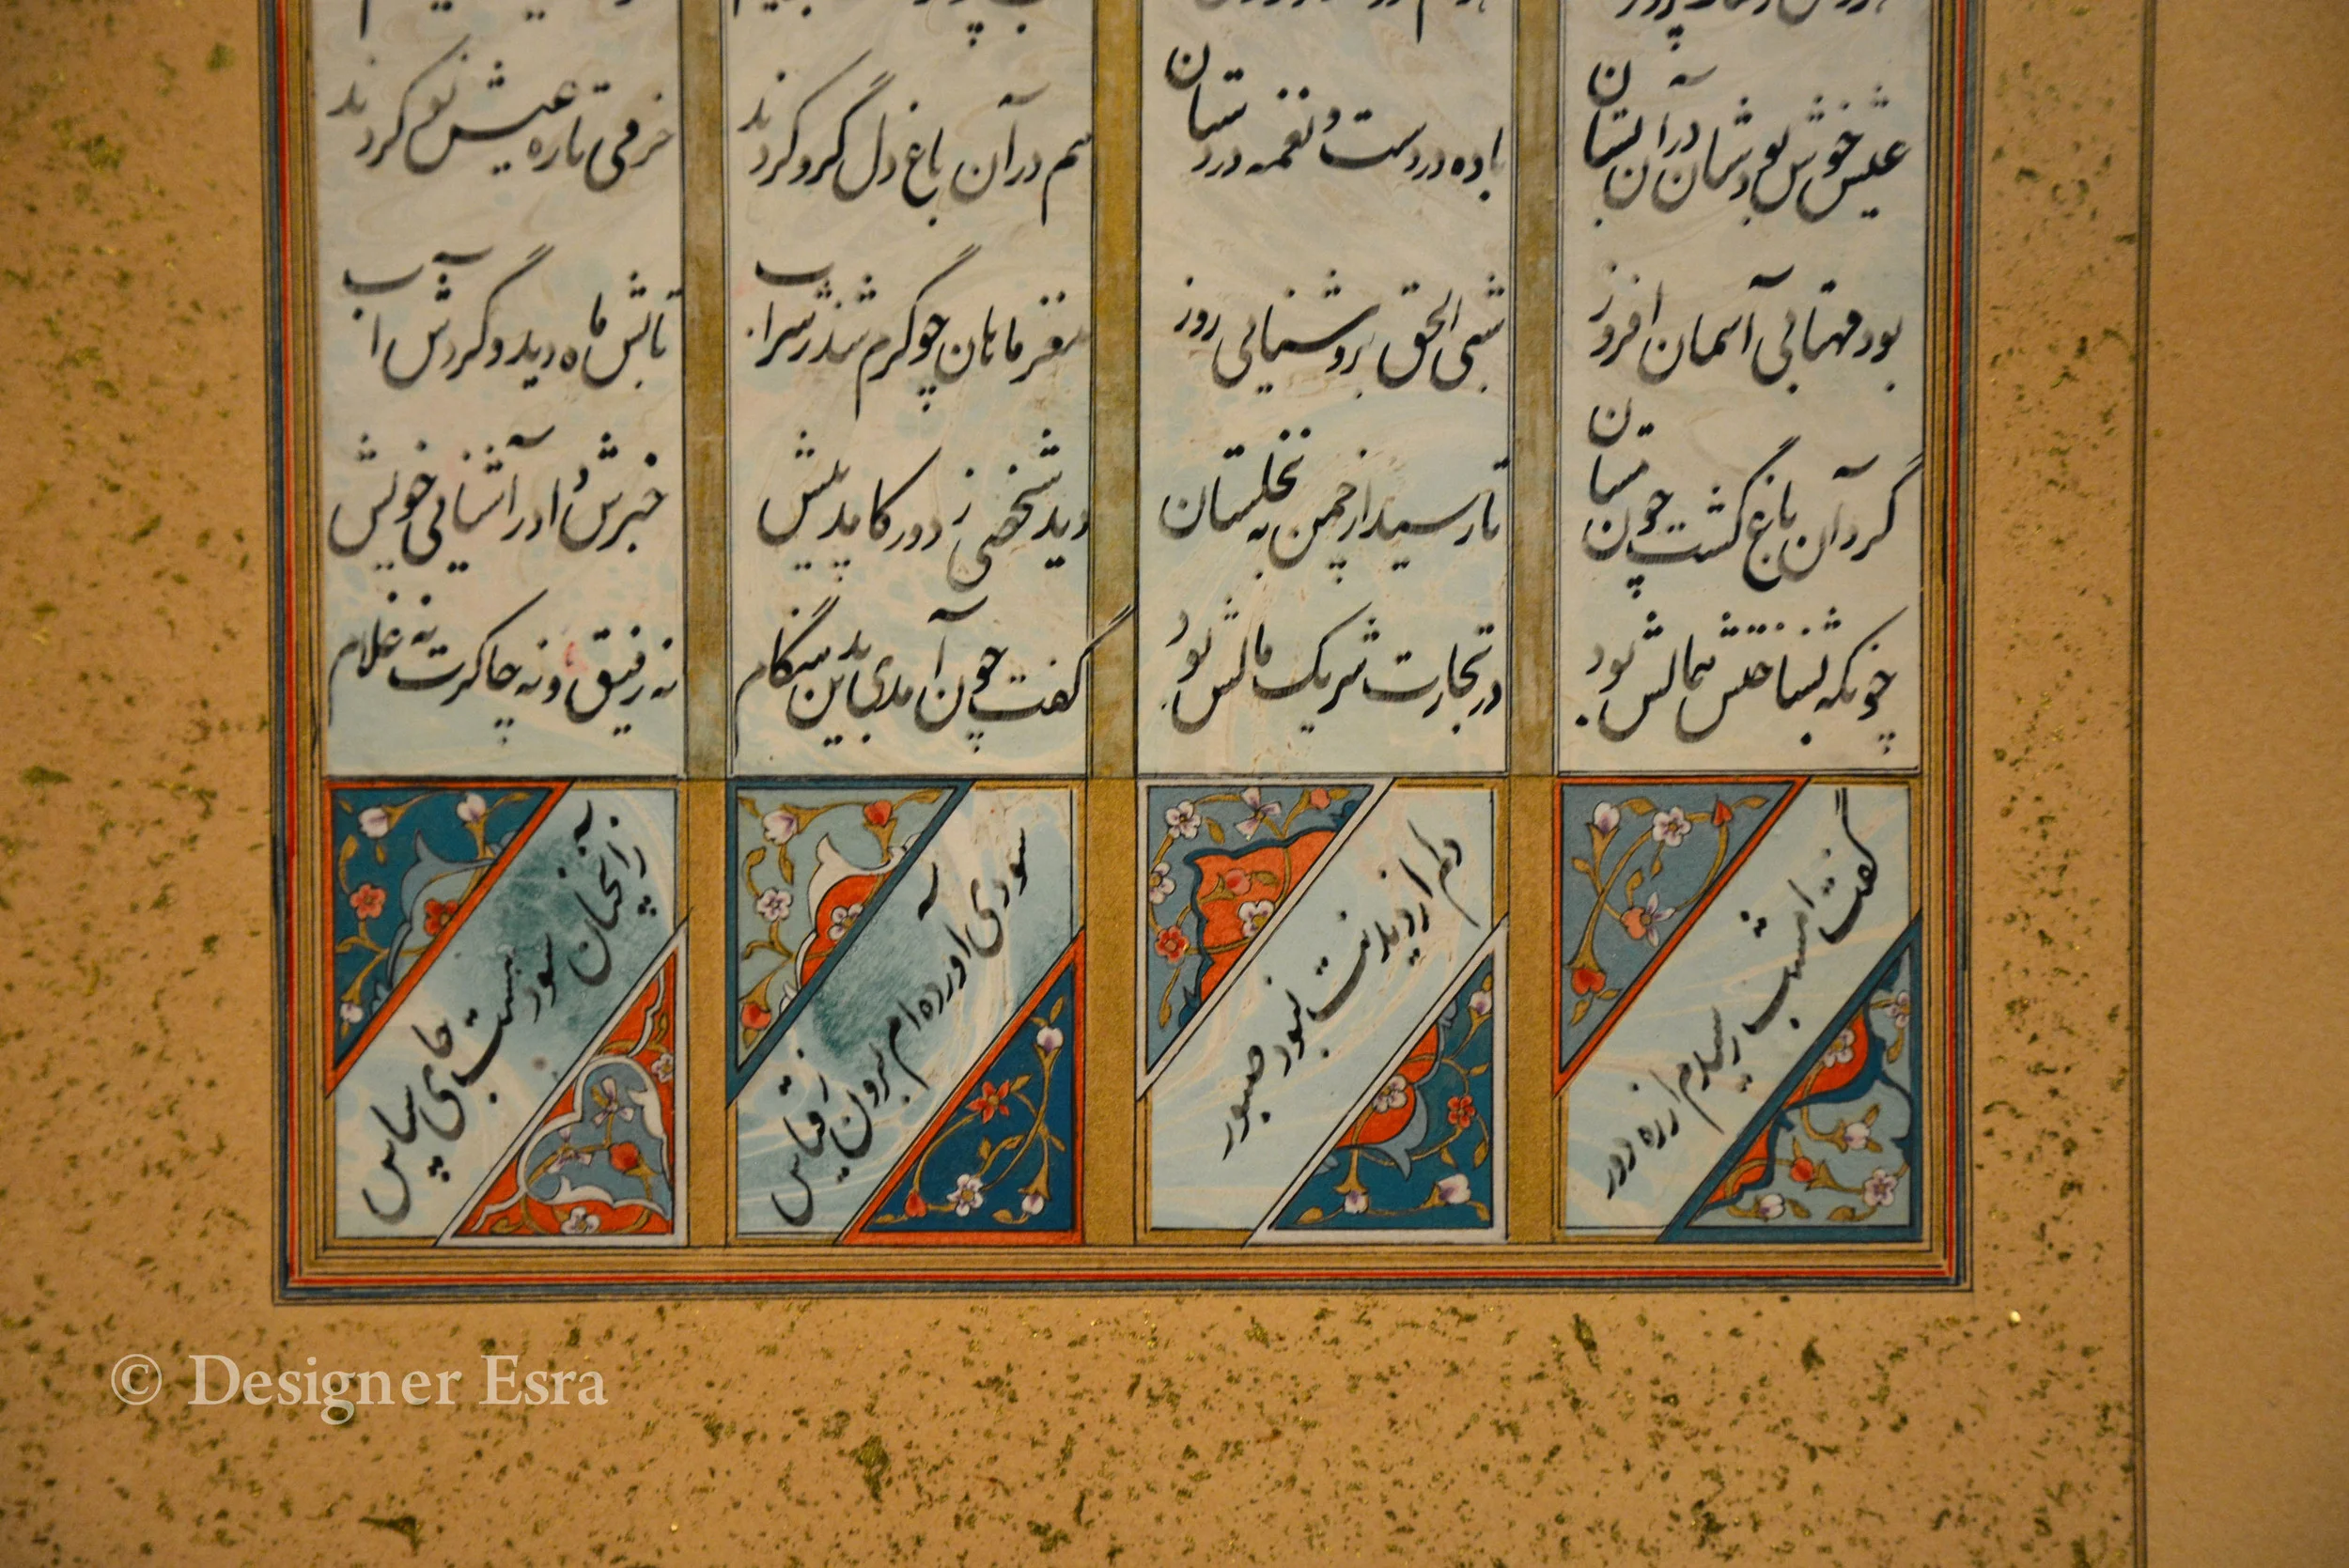 عیش خوش بودشان در آن بستان باده در دست و نغمه در دستان هم در آن باغ دل گرو کردند خرمی تازه عیش نو کردند
بود مهتابی آسمان افروز شبی الحق بروشنایی روز مغز ماهان چو گرم شد ز شراب تابش ماه دید و گردش آب
گرد آن باغ گشت چون مستان تا رسید از چمن به نخلستان دید شخصی ز دور کامد پیش خبرش داد ز آشنایی خویش
چونکه بشناختش همالش بود در تجارت شریک مالش بود گفت چون آمدی بدین هنگام نه رفیق و نه چاکرت نه غلام
گفت امشب رسیدم از ره دور دلم از دیدنت نبود صبور سودی آورده ام برون ز قیاس زآنچنان سود هست جای سپاس
© Designer Esra